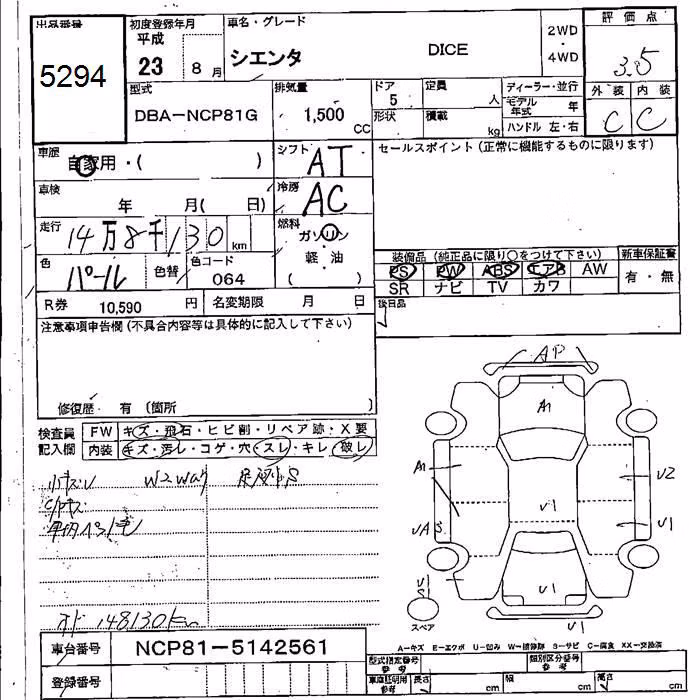 出品番号
5294
初度登録年月
平成
23
8月
車名・グレード
シエンタ
DICE
2WD
・
4WD
評価点
3.5
外装
内装
C
C
型式
DBA-NCP81G
排気量
1,500
CC
ドア
5
形状
定員
人
積載
kg
ディーラー・並行
モデル年式
年
ハンドル 左・右
車歴
自家用・( )
シフト
AT
セールスポイント (正常に機能するものに限ります)
車検
年 月( 日)
冷房
AC
走行
14万8千130
km
燃料
ガソリン
軽・油
( )
色
パール
色替
色コード
064
装備品 (純正品に限り○をつけて下さい)
新車保証書
PS PW ABS エアB AW
有・無
SR ナビ TV カワ
R券 10,590 円
名変期限 月 日
後日品
注意事項申告欄 (不具合内容等は具体的に記入して下さい)
修復歴 有 (箇所 )
検査員
記入欄
FW
キズ・飛石・ヒビ割・リペア跡・X要
内装
キズ・汚レ・コゲ・穴・スレ・キレ・破レ
小キズ
W2Way
オド 148130km
AP
A1
A1
U2
U1
U1
U1
U1
スペア
A-キズ E-エクボ U-凹み W-補修跡 S-サビ C-腐食 XX-交換済
車台番号
NCP81-5142561
登録番号
型式指定番号
参考
類別区分番号
参考
車庫証明用
参考
長さ
cm
幅
cm
高さ
cm